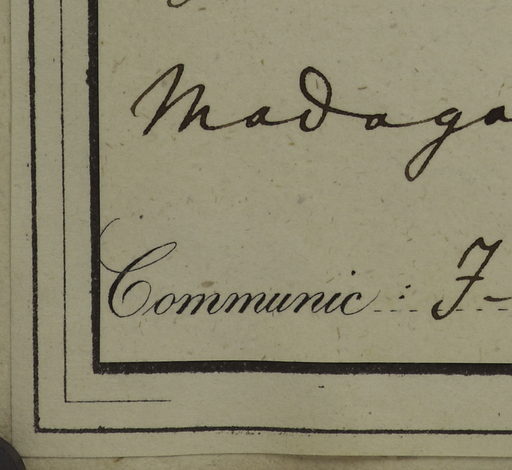 Madaga
Communic: F-